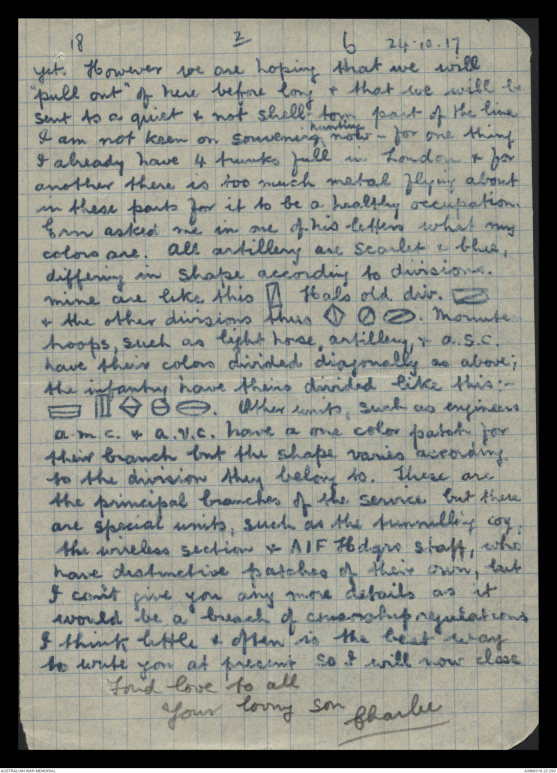 18 2 6 24.10.17
yet. However we are hoping that we will
"pull out" of here before long & that we will be
sent to a quiet & not shell torn part of the line
I am not keen on souvenir hunting now - for one thing
I already have 4 trunks full in London & for
another there is too much metal flying about
in these parts for it to be a healthy occupation.
Ern asked me in one of his letters what my
colors are. All artillery are scarlet & blue,
differing in shape according to divisions.
mine are like this Hals old div.
& the other divisions thus . Mounted
troops, such as light horse, artillery, & a.s.c.
have their colors divided diagonally as above;
the infantry have theirs divided like this:-
. Other units, such as engineers
a.m.c. & a.v.c. have a one color patch for
their branch but the shape varies according
to the division they belong to. These are
the principal branches of the service but there
are special units, such as the tunnelling coy,
the wireless section & AIF Hdqrs staff, who
have distinctive patches of their own, but
I can't give you any more details as it
would be a breach of censorship regulations
I think little & often is the best way
to write you at present so I will now close
Fond love to all
Your loving son
Charlie
AUSTRALIAN WAR MEMORIAL